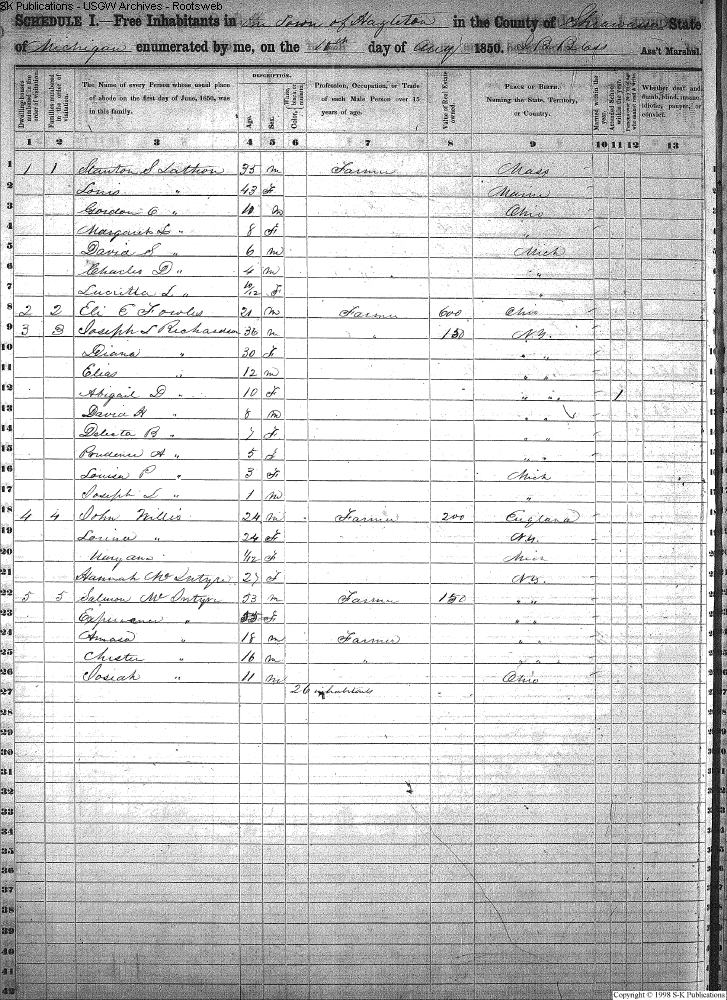 SK Publications - USGW Archives - Rootsweb
SCHEDULE I.—Free Inhabitants in the Town of Hazleton in the County of Shiawassee State
of Michigan enumerated by me, on the day of Aug 1850. Ass't Marshal.
Dwelling-houses numbered in the order of visitation.
Families numbered in the order of visitation.
The Name of every Person whose usual place of abode on the first day of June, 1850, was in this family.
DESCRIPTION.
Age.
Sex.
Color, White, black, or mulatto.
Profession, Occupation, or Trade of each Male Person over 15 years of age.
Value of Real Estate owned.
PLACE OF BIRTH. Naming the State, Territory, or Country.
Married within the year.
Attended School within the year.
Whether deaf and dumb, blind, insane, idiotic, pauper, or convict.
1 2 3 4 5 6 7 8 9 10 11 12 13
1 1 1 Stanton S Lathron 35 m Farmer Mass
2 Louis " 43 F Maine
3 Gordon C " m Ohio
4 Margaret L " 8 F "
5 David S " 6 m Mich
6 Charles D " 4 m "
7 Lucretta L " 10/12 F "
8 2 2 Eli E Fowles 21 m Farmer 600 Ohio
9 3 3 Joseph L Richardson 36 m " 150 N.Y.
10 Diana " 30 F " "
11 Elias " 12 m " "
12 Abigail D " 10 F " " 1
13 David H " 8 m " "
14 Delecta B " 7 F " "
15 Prudence A " 5 F " "
16 Louisa P " 3 F Mich
17 Joseph L " 1 m "
18 4 4 John Willis 24 m Farmer 200 England
19 Lorina " 24 F N.Y.
20 Mary ann 1/12 F Mich
21 Hannah McIntyre 27 F N.Y.
22 5 5 Salmon McIntyre 53 m Farmer 150 " "
23 Experience " 55 F " "
24 Amasa " 18 m Farmer " "
25 Chester " 16 m " " "
26 Josiah " 11 m Ohio
27 26 inhabitants
28
29
30
31
32
33
34
35
36
37
38
39
40
41
42
Copyright © 1998 S-K Publications